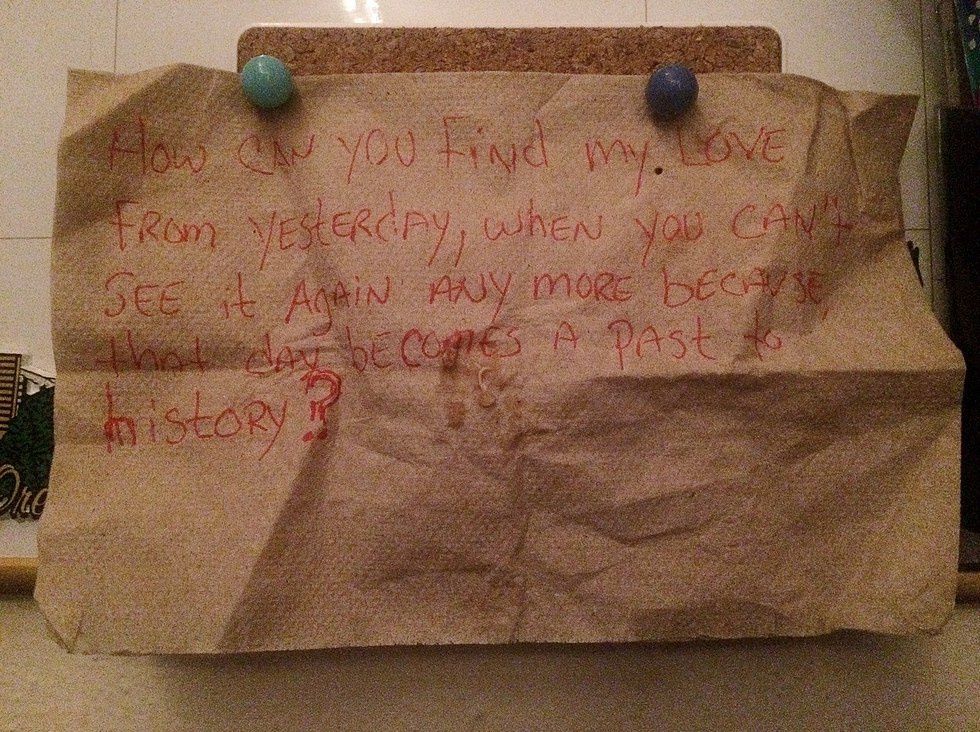 How CAN YOU Find my LOVE
From YESTERdAY, wHEN YOU CAN'T
SEE it AgAiN ANY mORE bECAUSE
that day bECOMES A PAST to
history?
Ore